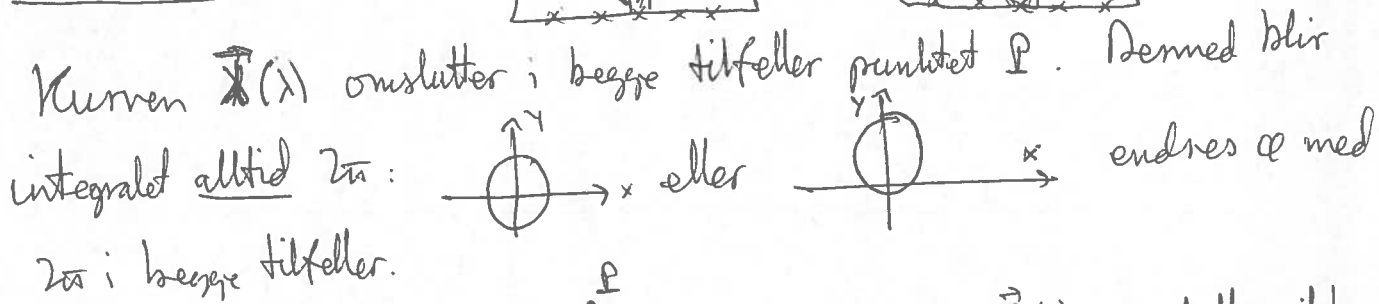 Kurven X(λ) omslutter i begge tilfeller punktet P. Dermed blir
integralet alltid 2π: Y x eller Y x endres φ med
2π i begge tilfeller.
P